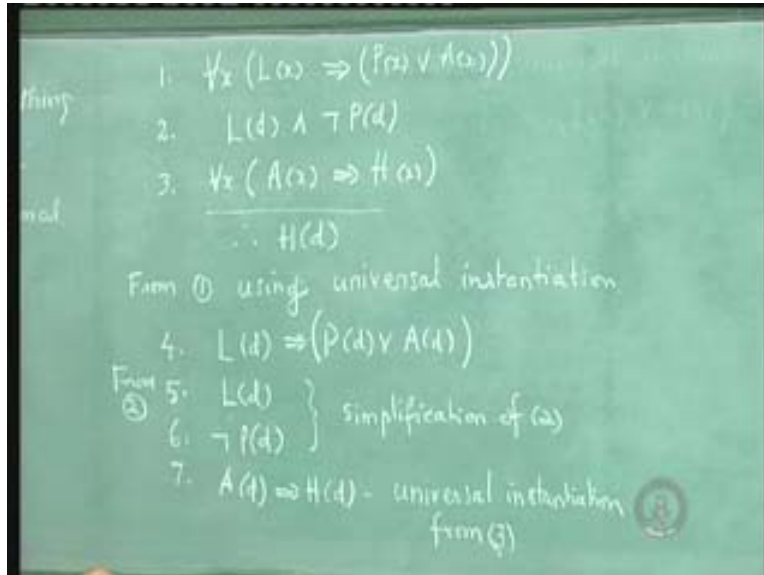 1. ∀x (L(x) ⇒ (P(x) ∨ A(x)))
thing
2. L(d) ∧ ¬ P(d)
3. ∀x ( A(x) ⇒ H(x))
∴ H(d)
From ① using universal instantiation
4. L(d) ⇒ (P(d) ∨ A(d))
From ② 5. L(d)
6. ¬ P(d) } simplification of (2)
7. A(d) ⇒ H(d) - universal instantiation
from (3)